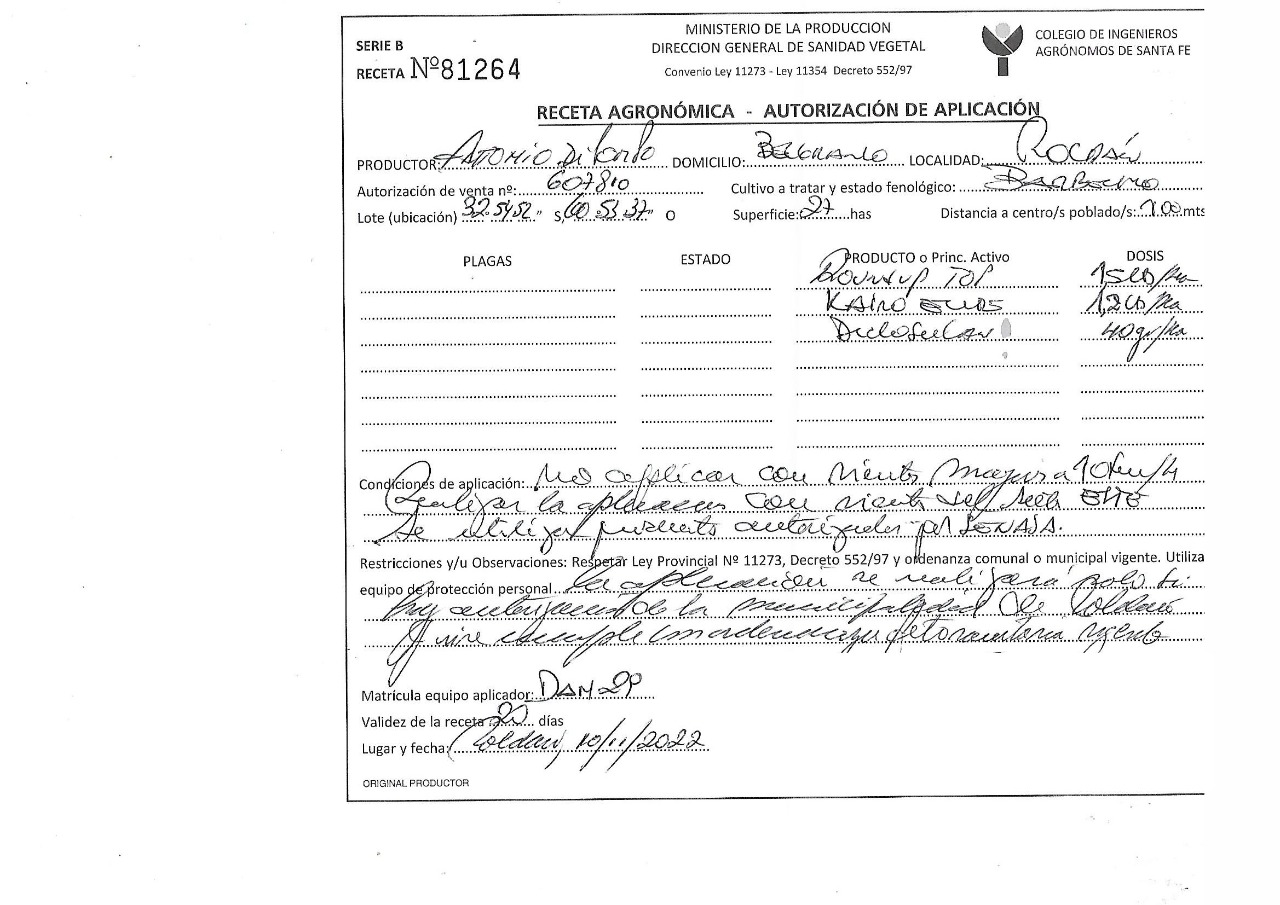 MINISTERIO DE LA PRODUCCION
DIRECCION GENERAL DE SANIDAD VEGETAL
Convenio Ley 11273 - Ley 11354 Decreto 552/97
COLEGIO DE INGENIEROS
AGRÓNOMOS DE SANTA FE
SERIE B
RECETA Nº81264
RECETA AGRONÓMICA - AUTORIZACIÓN DE APLICACIÓN
PRODUCTOR: Antonio Di DOMICILIO: Belgrano LOCALIDAD: Roldán
Autorización de venta nº: 607810 Cultivo a tratar y estado fenológico: Barbecho
Lote (ubicación) 32 54 52" S, 60 53 37" O Superficie: 27 has Distancia a centro/s poblado/s: mts
PLAGAS ESTADO PRODUCTO o Princ. Activo DOSIS
Roundup TOP
KAIRÓ 1,2
Diclosulan 40gr/Ha
Condiciones de aplicación: No aplicar con viento mayor a 10
Realizar la aplicacion con viento del
Se utilizan autorizados por SENASA.
Restricciones y/u Observaciones: Respetar Ley Provincial Nº 11273, Decreto 552/97 y ordenanza comunal o municipal vigente. Utiliza
equipo de protección personal la aplicación se realizará solo si
hay de la municipalidad de Roldán
cumple vigente
Matrícula equipo aplicador: DAM
Validez de la receta 20 días
Lugar y fecha: Roldan, 10/11/2022
ORIGINAL PRODUCTOR